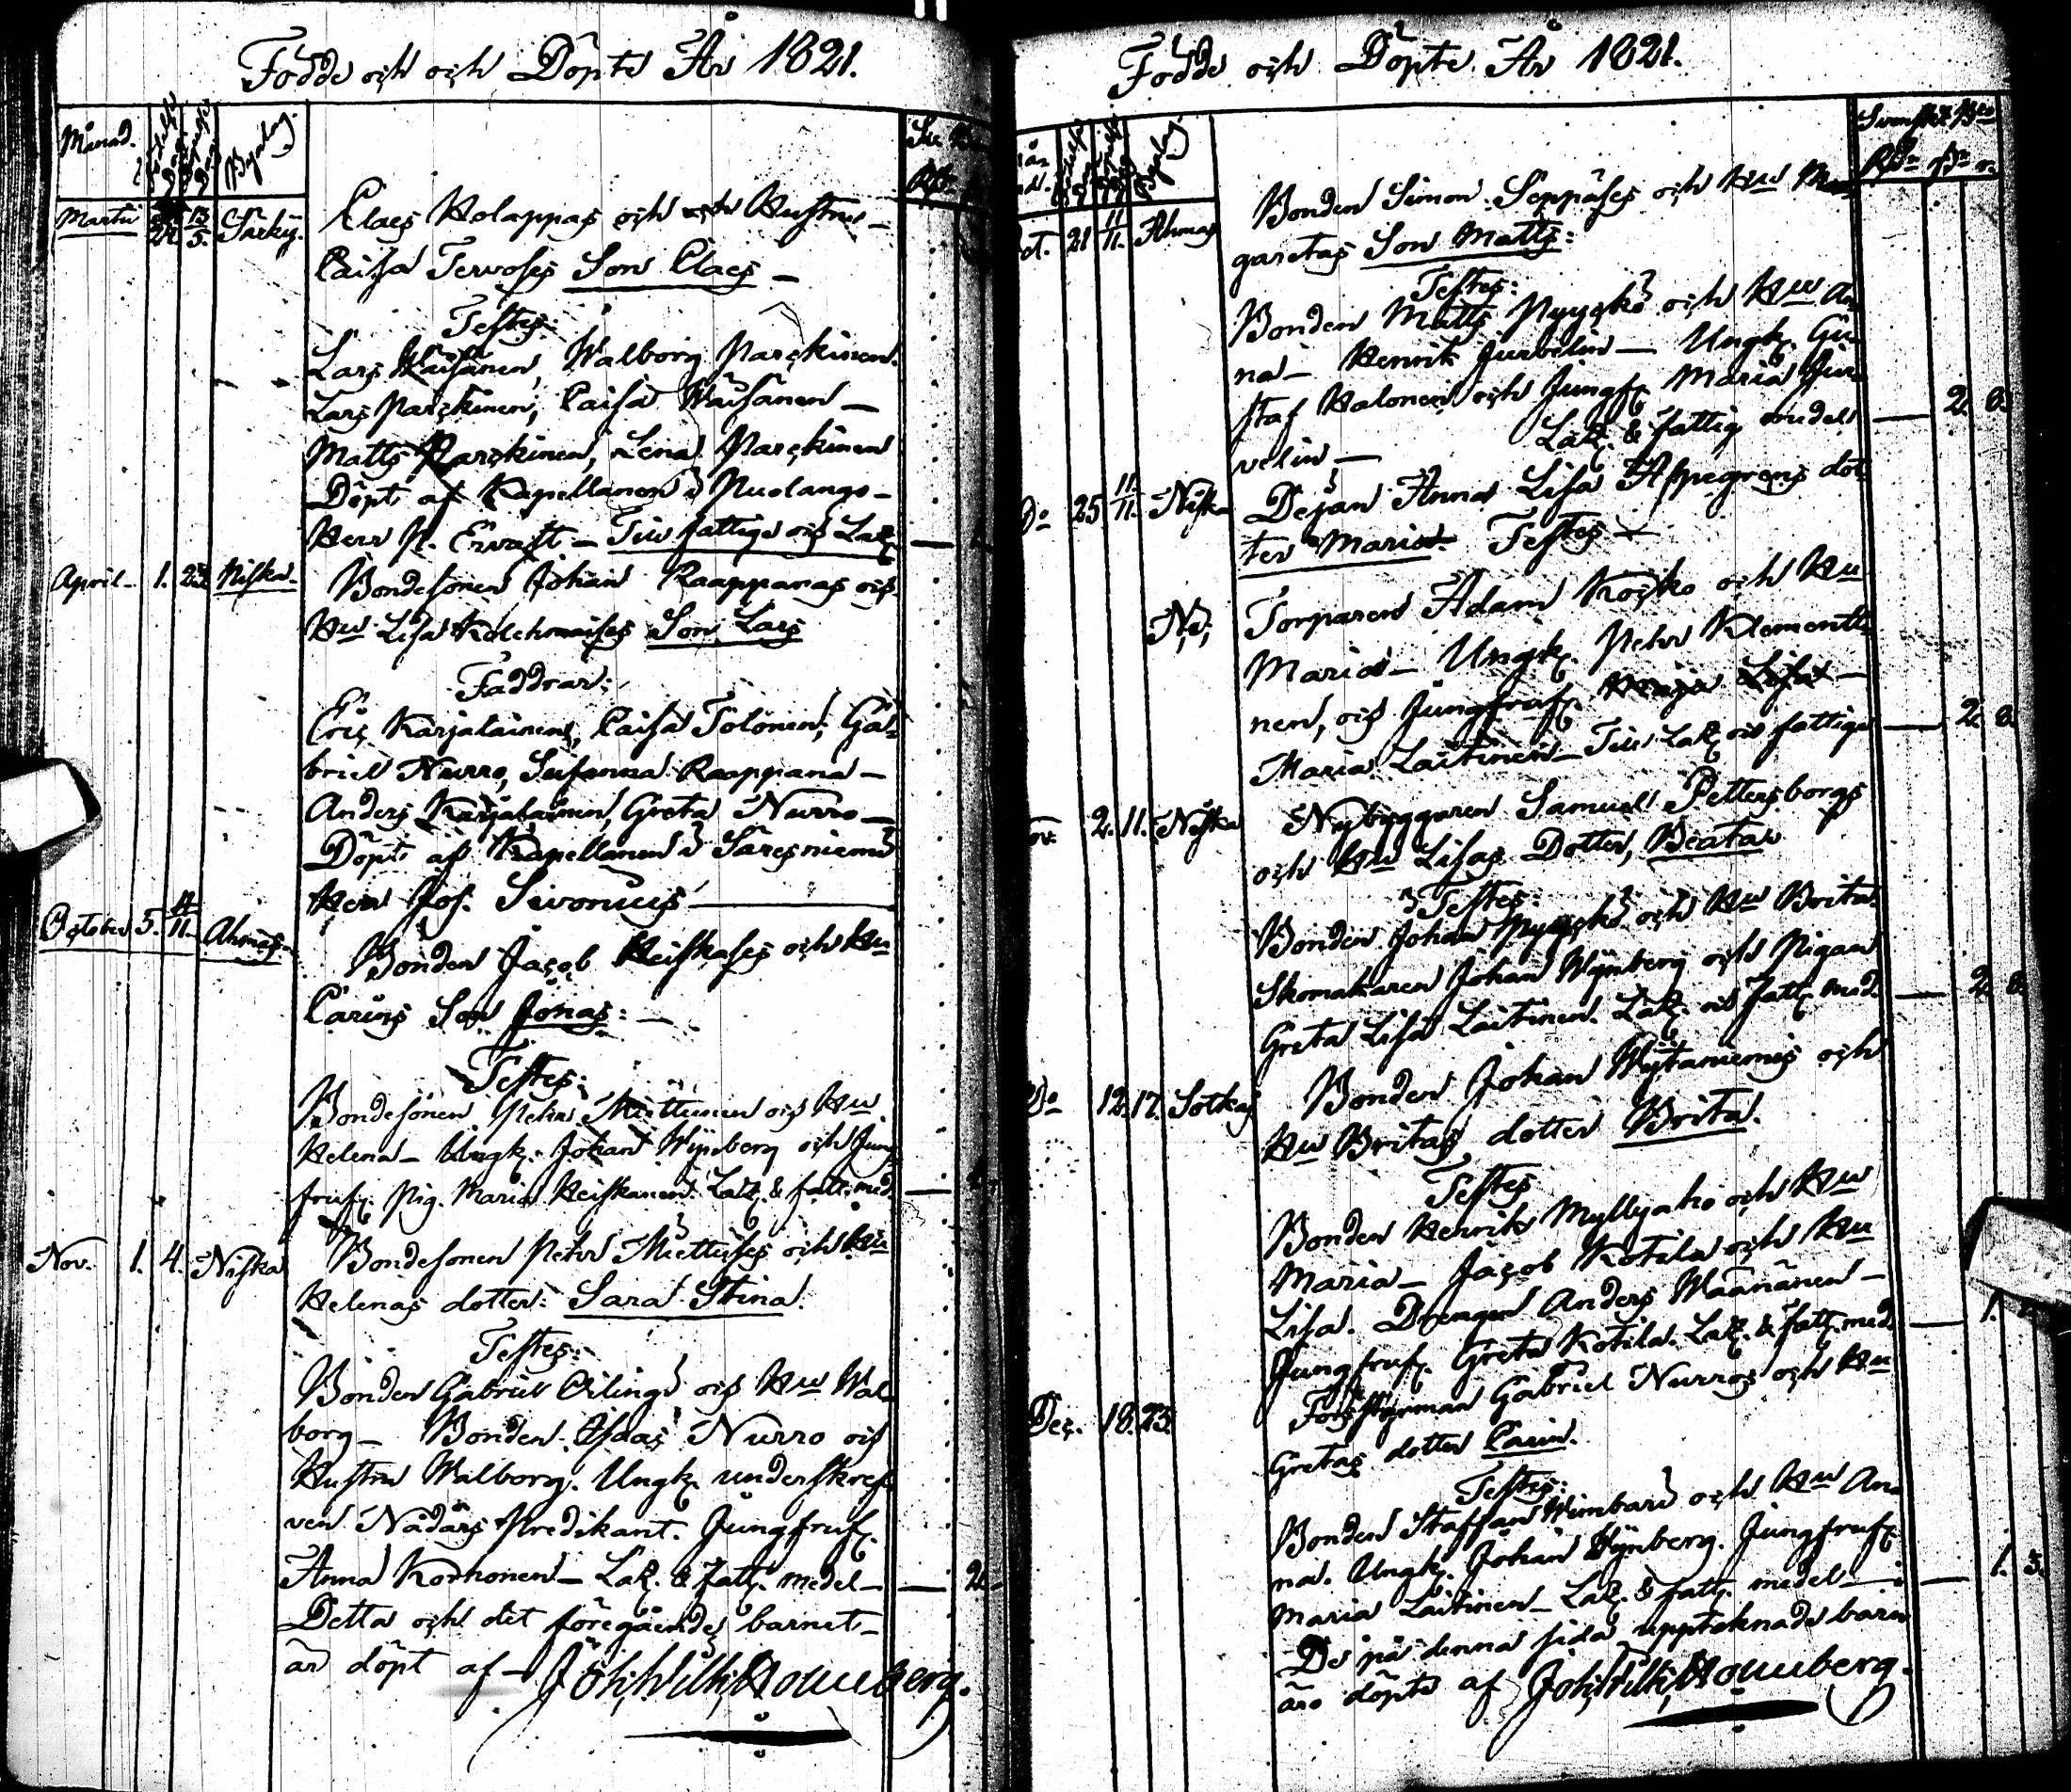 Födde och och Döpte År 1821.
Månad. Födelse Dag Byalag.
Martii 13/5. Särky. Claes Holappas och Hustru
Caisa Tervoses Son Claes –
Testes:
Lars Wäisänen, Walborg Parckinen.
Lars Parckinen, Caisa Wäisänen –
Matts Parckinen, Lena Parckinen
Döpt af Kapellanen i Puolango –
Herr P. Ervast – Till fattige och Laz.
April – 1. 23. Niska – Bondesonen Johan Raappanas och
Hu Lisa Kolehmaises Son Lars
Faddrar:
Eric Karjalainen, Caisa Tolonen, Ga-
briel Nurro, Susanna Raappana –
Anders Karjalainen, Greta Nurro –
Döpt af Kapellanen i Säresniemi
Herr Jos. Sivonius
October 5. 11. Ahmas – Bonden Jacob Heiskases och Hu
Carins Son Jonas: –
Testes:
Bondesonen Petter Miettunen och Hu
Helena – Ungk. Johan Wynberg och Jung
fruf. Pig. Maria Heiskanen. Laz. & fatt. med.
Nov. 1. 4. Niska Bondesonen Petter Miettuses och Hu
Helenas dotter: Sara Stina.
Testes:
Bonden Gabriel Oilingi och Hu Wal-
borg – Bonden Isaac Nurro och
Hustru Walborg. Ungk. underskref-
ven Nådårs Predikant. Jungfruf.
Anna Korhonen – Laz. & fatt. medel – 2.
Detta och det föregående barnet –
är döpt af – Joh. Wilh. Homeberg.
Födde och Döpte År 1821.
Byalag Svenskt Bco
Rdr
Oct. 21 11/11. Ahmas Bonden Simon Seppäses och Hu Mar
garetas Son Matts:
Testes:
Bonden Matts Pyyckö och Hu An
na – Henrik Jurvelin – Ungk. Gu-
staf Halonen och Jungf. Maria Jur-
velin – Laz. & fattig medel – 2. 8.
Do 25 11/11. Niska Dejan Anna Lisa Aspegrens dot
ter Maria. Testes –
N; Torparen Adam Kocko och Hu
Maria – Ungk. Petter Klementti-
nen, och Jungfruf.
Maria Laitinen – Till Laz. och fattige – 2. 8.
Nov. 2. 11. Niska Nybyggaren Samuel Pettersborgs
och Hu Lisas Dotter, Beata
Testes:
Bonden Johan Pyyckö och Hu Brita.
Skomakaren Johan Wynberg och Pigan
Greta Lisa Laitinen. Laz. och fatt. med. – 2. 8.
Do 12. 17. Sotka Bonden Johan Wytaniemis och
Hu Britas dotter Brita.
Testes
Bonden Henrik Myllyaho och Hu
Maria – Jacob Kotila och Hu
Lisa. Drengen Anders Määnänen –
Jungfruf. Greta Kotila. Laz. & fatt. med. – 1.
Dec. 18. 23. Forsstyrman Gabriel Nurros och Hu
Gretas dotter Carin.
Testes:
Bonden Staffan Wimbari och Hu An-
na. Ungk. Johan Wynberg. Jungfruf.
Maria Laitinen – Laz. & fatt. medel – 1. 3.
De på denna sida upptecknade barn
äro döpte af Joh. Wilh. Homeberg.